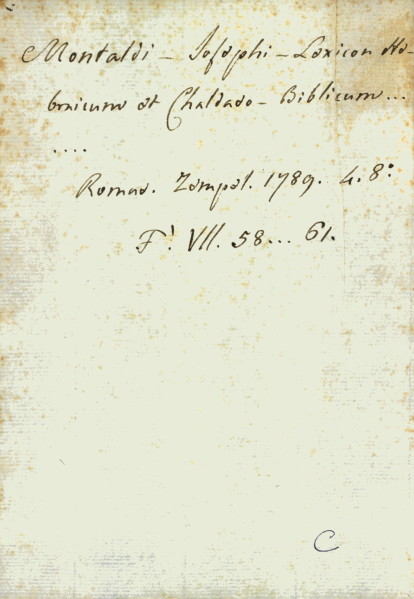 Montaldi - Josephi - Lexicon He-
braicum et Chaldaeo - Biblicum ...
....
Romae. Zempel. 1789. 4. 8º
F! VII. 58... 61.
C